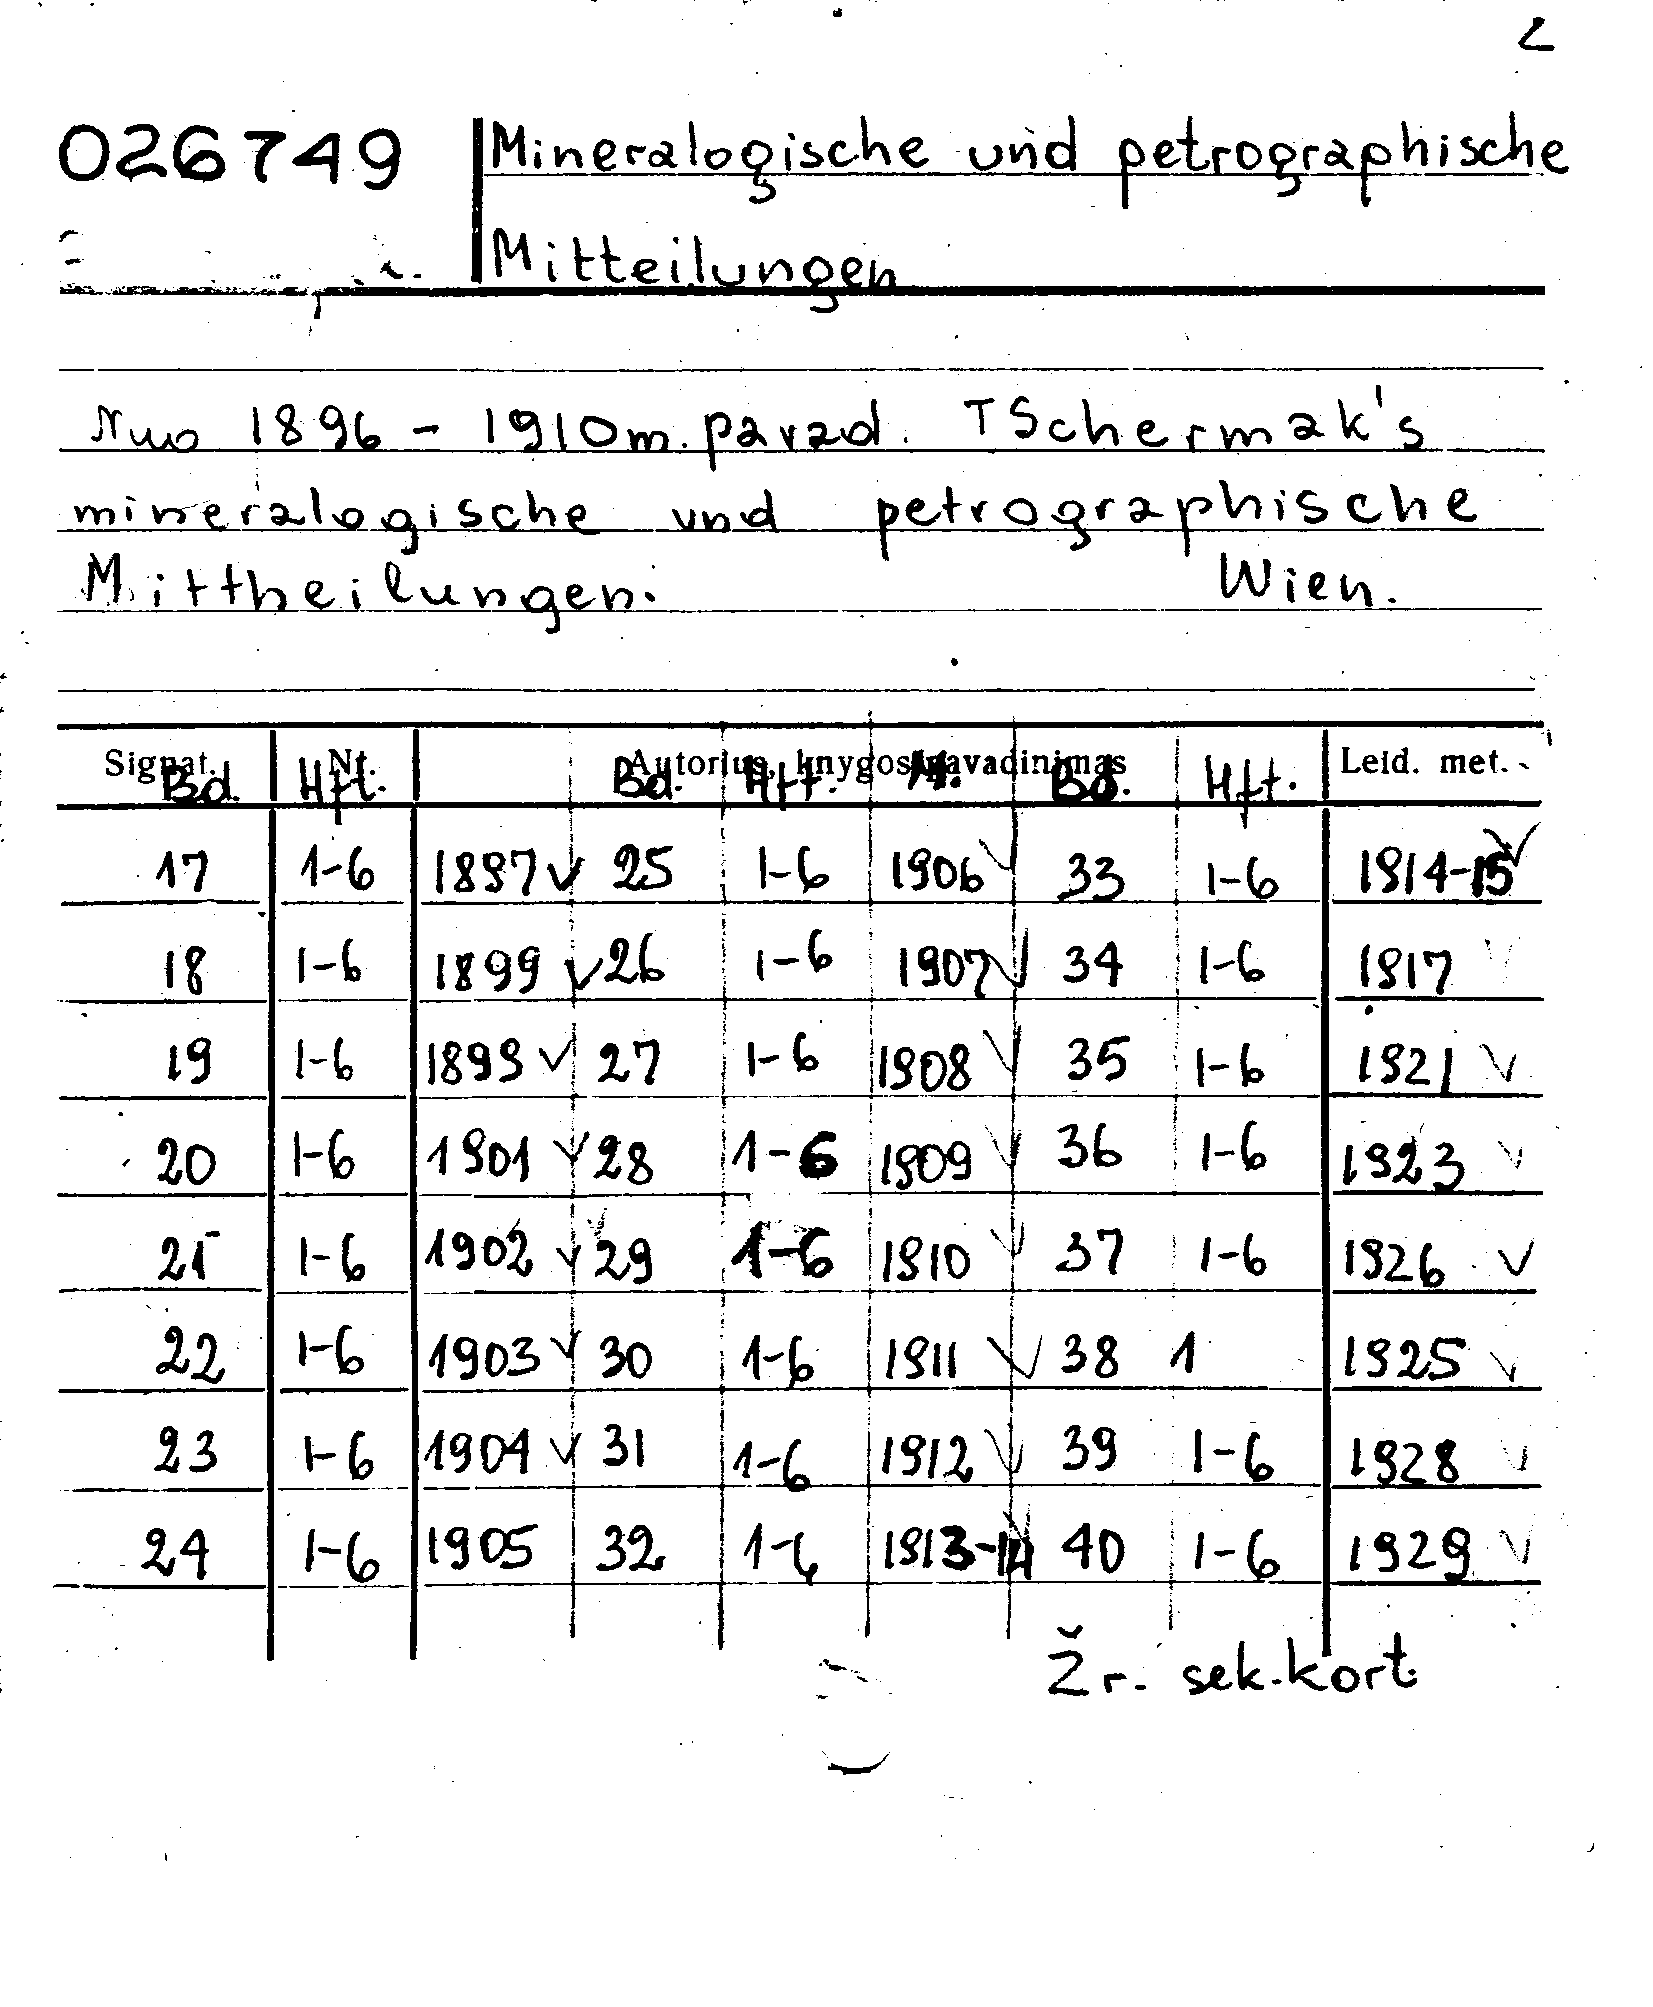 2
026749 Mineralogische und petrographische
Mitteilungen
Nuo 1896 - 1910 m. pavad. TSchermak's
mineralogische und petrographische
Mittheilungen. Wien.
Signat. Nt. Autorius, knygos pavadinimas Leid. met.
Bd. Hft. Bd. Hft. M. Bd. Hft.
17 1-6 1897 ✓ 25 1-6 1906 ✓ 33 1-6 1914-15 ✓
18 1-6 1899 ✓ 26 1-6 1907 ✓ 34 1-6 1917 ✓
19 1-6 1899 ✓ 27 1-6 1908 ✓ 35 1-6 1921 ✓
20 1-6 1901 ✓ 28 1-6 1909 ✓ 36 1-6 1923 ✓
21 1-6 1902 ✓ 29 1-6 1910 ✓ 37 1-6 1926 ✓
22 1-6 1903 ✓ 30 1-6 1911 ✓ 38 1 1925 ✓
23 1-6 1904 ✓ 31 1-6 1912 ✓ 39 1-6 1928 ✓
24 1-6 1905 32 1-6 1913-14 ✓ 40 1-6 1929 ✓
Žr. sek. kort.